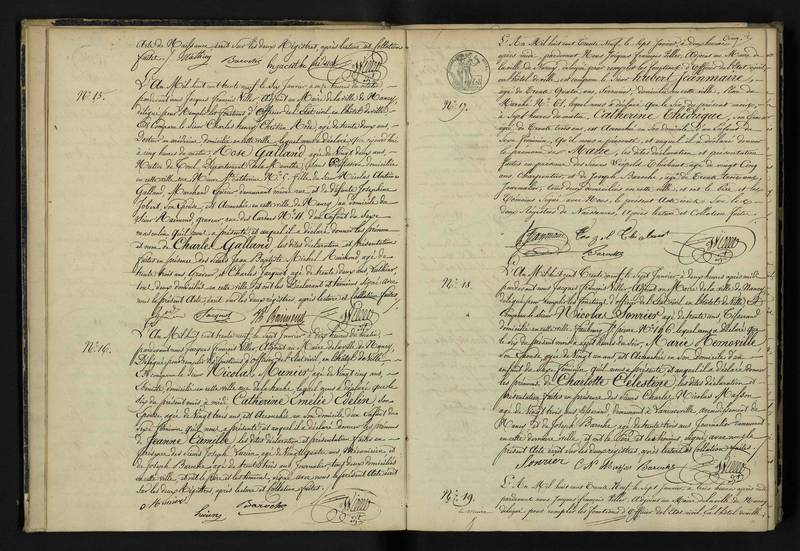 Acte de Naissance écrit sur les deux Registres, après lecture et Collation
faite.
Barotte
N.º 15.
L'An Mil huit cent trente neuf le six Janvier à
pardevant nous Jacques François Villers Adjoint au Maire de la ville de Nancy,
délégué pour remplir les fonctions d'Officier de l'Etat civil en l'hôtel de ville
Est comparu le Sieur Charles Henry Chrétien Rose, âgé de trente deux ans,
Docteur en médecine, domicilié en cette ville, lequel nous a déclaré que
à cinq heures du matin, Rose Galland âgée de Vingt deux ans,
domiciliée
en cette ville rue Sainte Catherine N.º 5. fille du Sieur Nicolas Antoine
Galland, Marchand Epicier demeurant même rue et de défunte Joséphine
Jobert, son Epouse, est Accouchée en cette ville de Nancy au domicile du
Sieur Raimond, graveur, rue des Carmes N.º 11. d'un Enfant du Sexe
masculin, qu'il nous a présenté, et auquel il a déclaré donner les prénom
et nom de Charles Galland, les dites déclaration et présentation
faites en présence des Sieurs Jean Baptiste Michel Raimond âgé de
trente trois ans Graveur et Charles Jacquot âgé de trente deux ans
tous deux domiciliés en cette ville et ont les Déclarant et témoins signé avec
nous le présent Acte, écrit sur les deux registres, après lecture et Collation faites.
Jacquot
N.º 16.
L'An Mil huit cent trente neuf le sept Janvier à dix heures du matin,
pardevant nous Jacques François Villers, Adjoint au Maire de la ville de Nancy,
Délégué pour remplir les fonctions d'Officier de l'Etat civil, en l'hôtel de Ville
Est comparu le Sieur Nicolas Munier âgé de Vingt cinq ans,
domicilié en cette ville rue de la hache, lequel nous a déclaré que le
six du présent mois à midi Catherine Emélie Edelin, Son
Epouse, âgée de Vingt trois ans est Accouchée, en son domicile d'un Enfant du
Sexe féminin, qu'il nous a présenté et auquel il a déclaré donner les prénoms
de Jeanne Camille, les dites déclaration et présentation faites en
présence des Sieurs Joseph Lucien, âgé de Vingt quatre ans
et de Joseph Barotte, âgé de trente trois ans Journalier tous deux domiciliés
en cette ville, et ont le père et les témoins, signé avec nous le présent Acte écrit
sur les deux Registres, après lecture et Collation faites.
Munier
Lucien
Barotte
N.º 17.
L'An Mil huit cent Trente Neuf, le Sept Janvier, à deux heures
après midi, pardevant Nous Jacques François Villers, Adjoint au Maire de
la ville de Nancy, délégué pour remplir les fonctions d'Officier de l'Etat civil
en l'hôtel de ville, est comparu le Sieur hubert Jeanmaire,
âgé de Trente Quatre ans, Serrurier, domicilié en cette ville, Rue du
Marché N.º 61, lequel nous a déclaré que le Six du présent mois,
à Sept heures du matin, Catherine Chédeque, son Epouse
âgée de Trente trois ans, est Accouchée en Son domicile, d'un Enfant du
Sexe féminin, qu'il nous a présenté, et auquel il a déclaré donner
le prénom de Marie, les dites déclaration et présentation
faites en présence des Sieurs Léopold Thiébaut, âgé de vingt Cinq
ans, Charpentier, et de Joseph Barotte, âgé de Trente trois ans
Journalier, tous deux domiciliés en cette ville, et ont le Père et les
témoins, signé avec Nous, le présent Acte écrit Sur les
deux Registres de Naissances, Après lecture et Collation faite.
Jeanmaire
Barotte
N.º 18.
L'An Mil huit cent Trente Neuf le Sept Janvier, à deux heures après midi
pardevant nous Jacques François Villers, Adjoint au Maire de la ville de Nancy
délégué pour remplir les fonctions d'officier de l'Etat civil en l'hôtel de Ville, Est
Comparu le Sieur Nicolas Sonrier, âgé de trente ans Tisserand
domicilié en cette ville, Faubourg St. pierre N.º 196, lequel nous a déclaré que
le six du présent mois à sept heures du soir, Marie Removille
son Epouse, âgée de Vingt un ans est Accouchée en Son domicile d'un
enfant du Sexe féminin, qu'il nous a présenté et auquel il a déclaré donner
les prénoms de Charlotte Célestine, les dites déclaration et
présentation faites en présence des Sieurs Charles Nicolas Masson
âgé de Vingt trois ans tisserand, demeurant à
Nancy et de Joseph Barotte âgé de trente trois ans Journalier demeurant
en cette dernière ville, et ont le Père et les témoins, signé avec nous le
présent Acte écrit sur les deux registres, après lecture et Collation faites.
Sonrier
C N Masson
Barotte
N.º 19.
L'An Mil huit cent Trente Neuf le Sept Janvier à trois heures après midi
pardevant nous Jacques François Villers, Adjoint au Maire de la ville de Nancy
délégué pour remplir les fonctions d'officier de l'Etat civil, en l'hôtel de ville